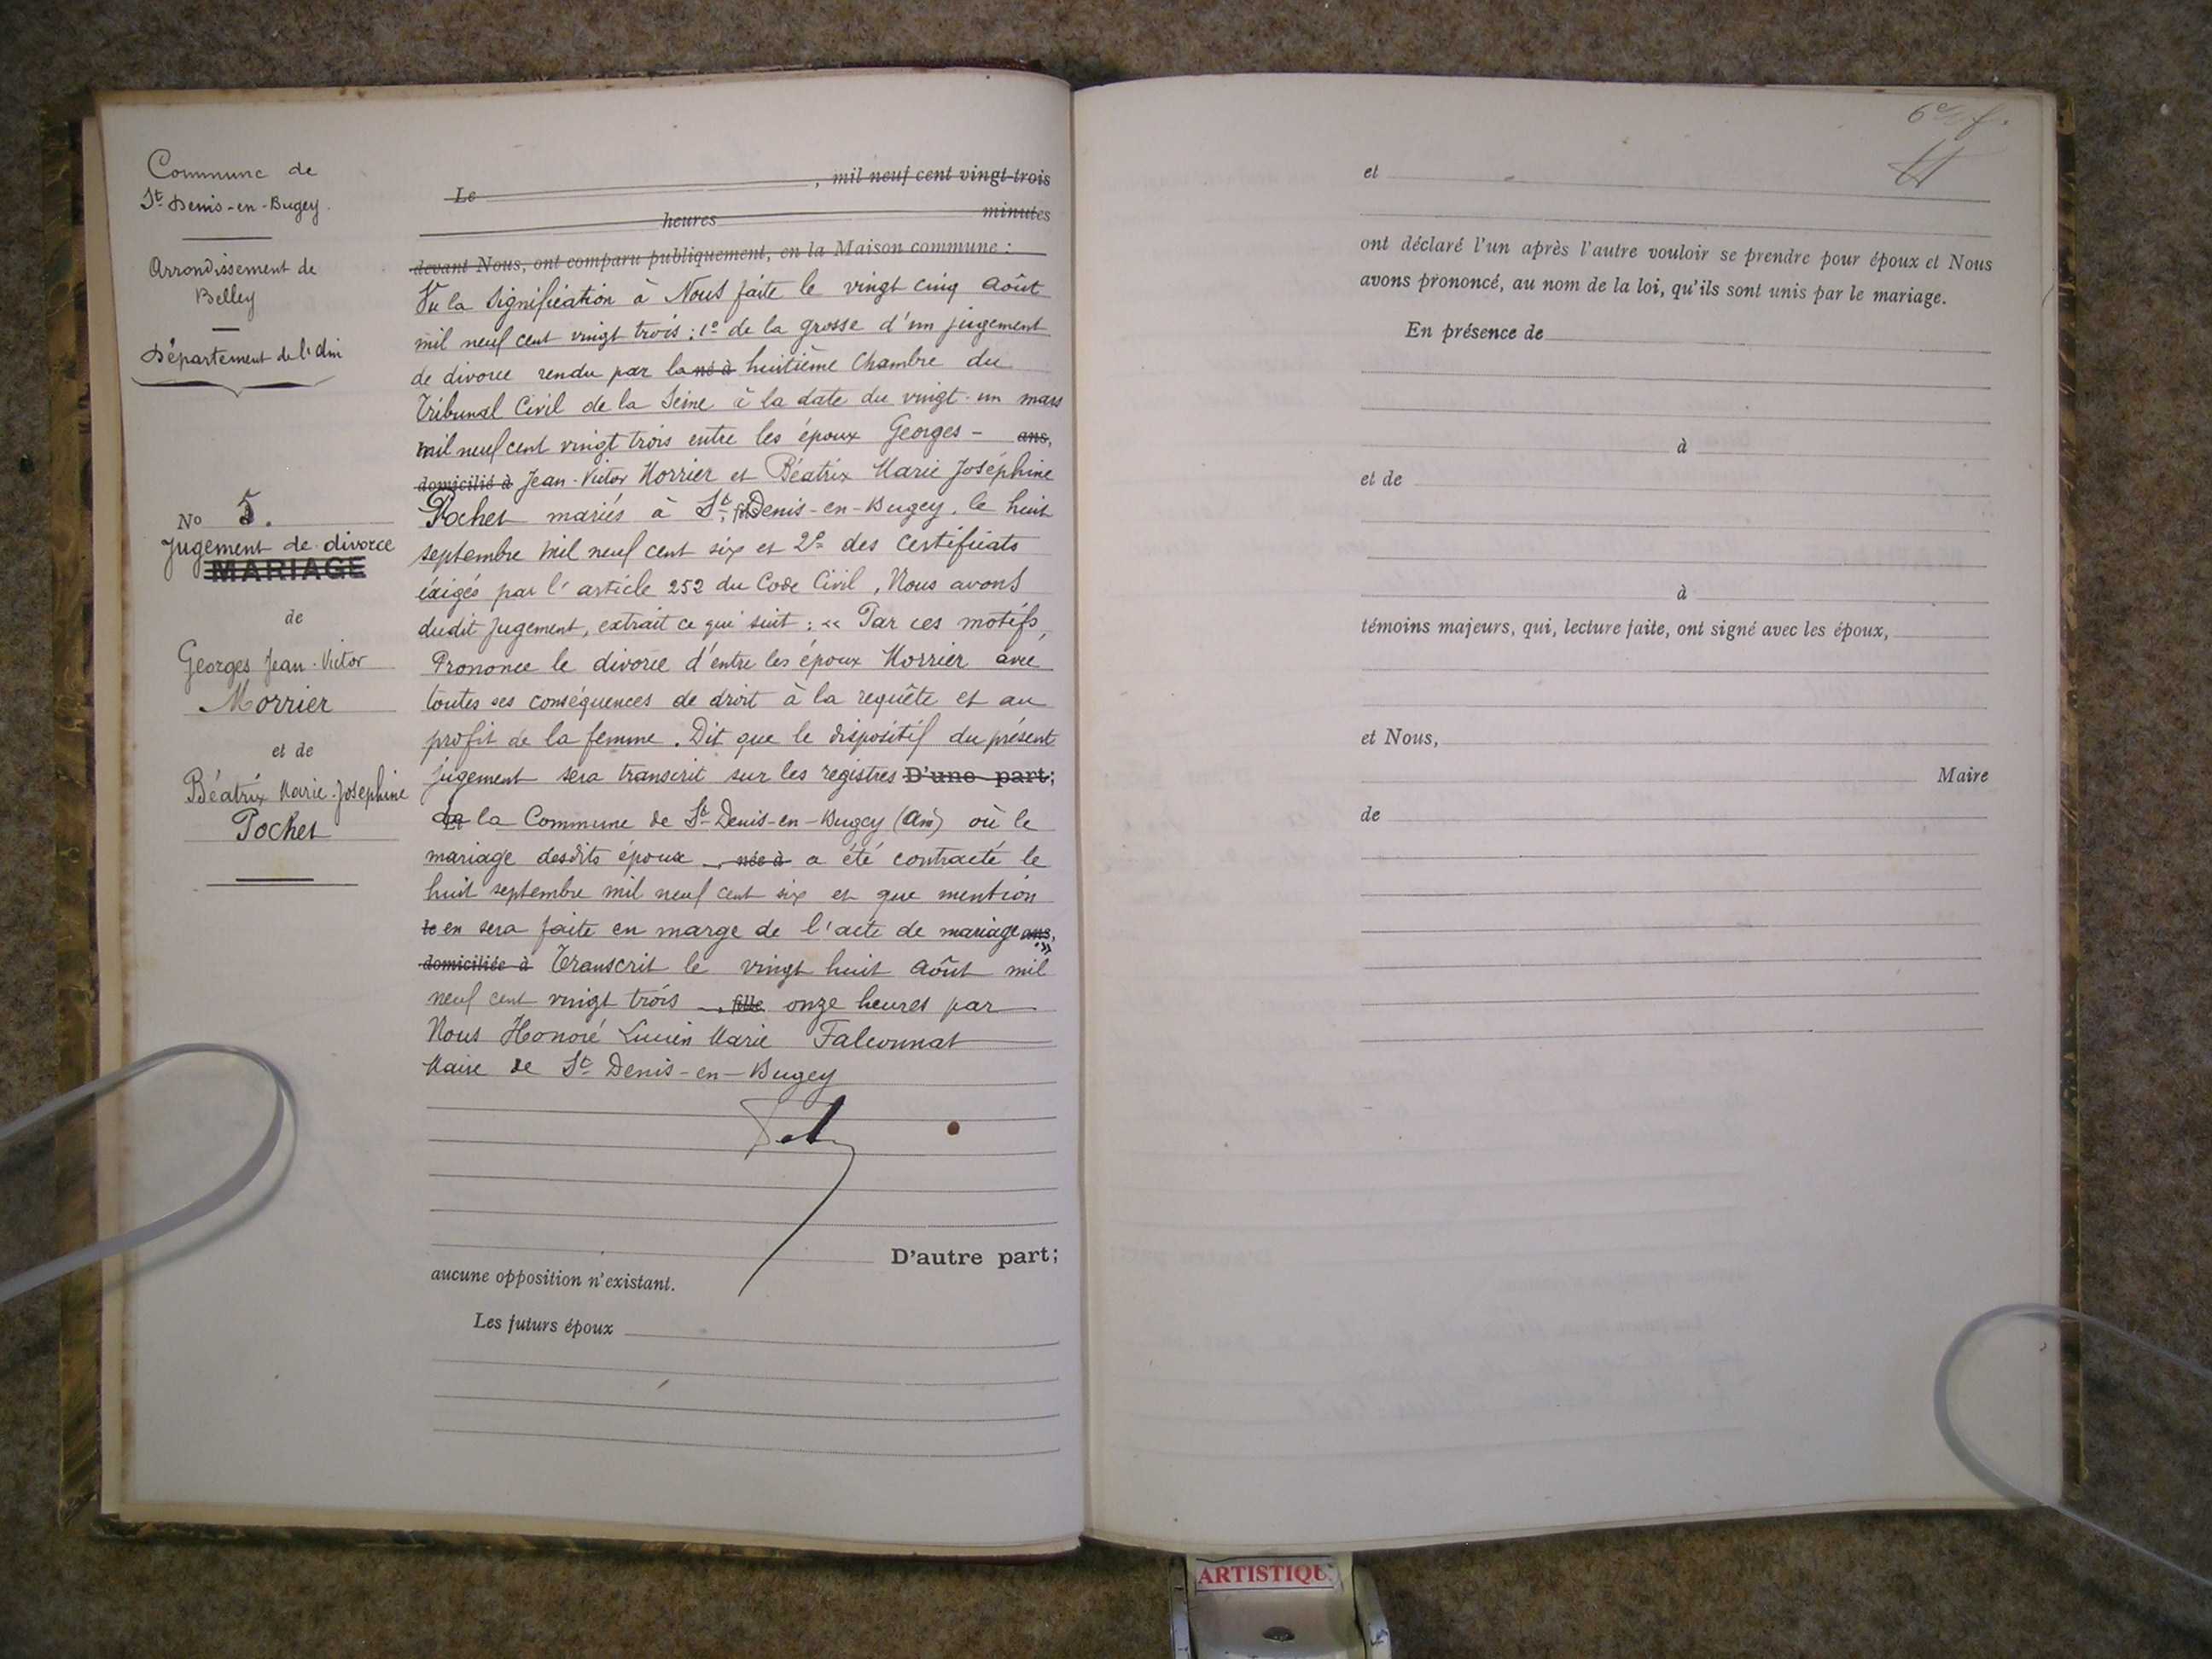 Commune de
St Denis-en-Bugey.
Arrondissement de
Belley
Département de l'Ain
No 5.
Jugement de divorce
MARIAGE
de
Georges Jean-Victor
Morrier
et de
Béatrix Marie-Joséphine
Pochet
Le , mil neuf cent vingt-trois
heures minutes
devant Nous, ont comparu publiquement, en la Maison commune :
Vu la signification à Nous faite le vingt cinq Août
mil neuf cent vingt trois : 1º de la grosse d'un jugement
de divorce rendu par la né à huitième Chambre du
Tribunal Civil de la Seine à la date du vingt-un mars
mil neuf cent vingt trois entre les époux Georges - ans,
domicilié à Jean-Victor Morrier et Béatrix Marie Joséphine
Pochet mariés à St fils Denis-en-Bugey, le huit
septembre mil neuf cent six et 2º des certificats
éxigés par l'article 252 du Code Civil, Nous avons
dudit jugement, extrait ce qui suit : « Par ces motifs,
Prononce le divorce d'entre les époux Morrier avec
toutes ses conséquences de droit à la requête et au
profit de la femme. Dit que le dispositif du présent
jugement sera transcrit sur les registres D'une part;
de la Commune de St Denis-en-Bugey (Ain) où le
mariage desdits époux , née à a été contracté le
huit septembre mil neuf cent six et que mention
le en sera faite en marge de l'acte de mariage ans, »
domiciliée à Transcrit le vingt huit Août mil
neuf cent vingt trois , fille onze heures par
Nous Honoré Lucien Marie Falconnat
Maire de St Denis-en-Bugey
D'autre part;
aucune opposition n'existant.
Les futurs époux
6e f.
et
ont déclaré l'un après l'autre vouloir se prendre pour époux et Nous
avons prononcé, au nom de la loi, qu'ils sont unis par le mariage.
En présence de
à
et de
à
témoins majeurs, qui, lecture faite, ont signé avec les époux,
et Nous,
Maire
de
ARTISTIQU